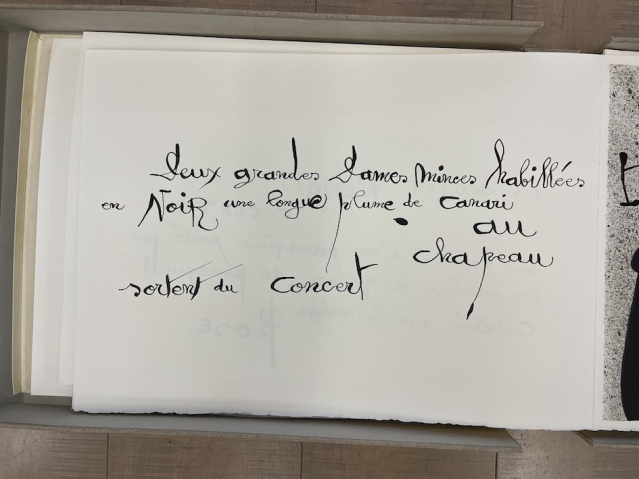 Deux grandes Dames minces habillées
en NoiR une longue plume de Canari
au
chapeau
sortent du Concert